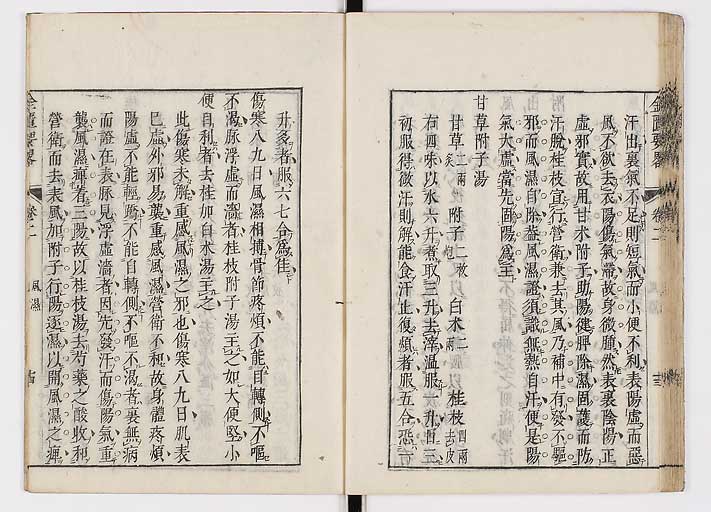 汗出裏氣不足則短氣而小便不利表陽虛而惡
風不欲去衣陽傷氣滯故身微腫然表裏陰陽正
虛邪實故用甘朮附子助陽健脾除濕固護而防
汗脫桂枝宣行營衛兼去其風乃補中有發不驅
邪而風濕自除蓋風濕證須識無熱自汗便是陽
氣大虛當先固陽為主
甘草附子湯
甘草二兩炙 附子二枚炮 白朮二兩 桂枝四兩去皮
右四味以水六升煮取三升去滓溫服一升日三
初服得微汗則解能食汗止復煩者服五合恐一
升多者服六七合為佳
傷寒八九日風濕相搏骨節疼煩不能自轉側不嘔
不渴脉浮虛而濇者桂枝附子湯主之如大便堅小
便自利者去桂加白朮湯主之
此傷寒未解重感風濕之邪也傷寒八九日肌表
已虛外邪易襲重感風濕營衛不和故身體疼煩
陽虛不能輕蹻不能自轉側不嘔不渴者裏無病
而證在表脉見浮虛濇者因先發汗而傷陽氣重
襲風濕痹著三陽故以桂枝湯去芍藥之酸收和
營衛而去表風加附子行陽逐濕以開風濕之痹
金匱要畧
卷二
風濕